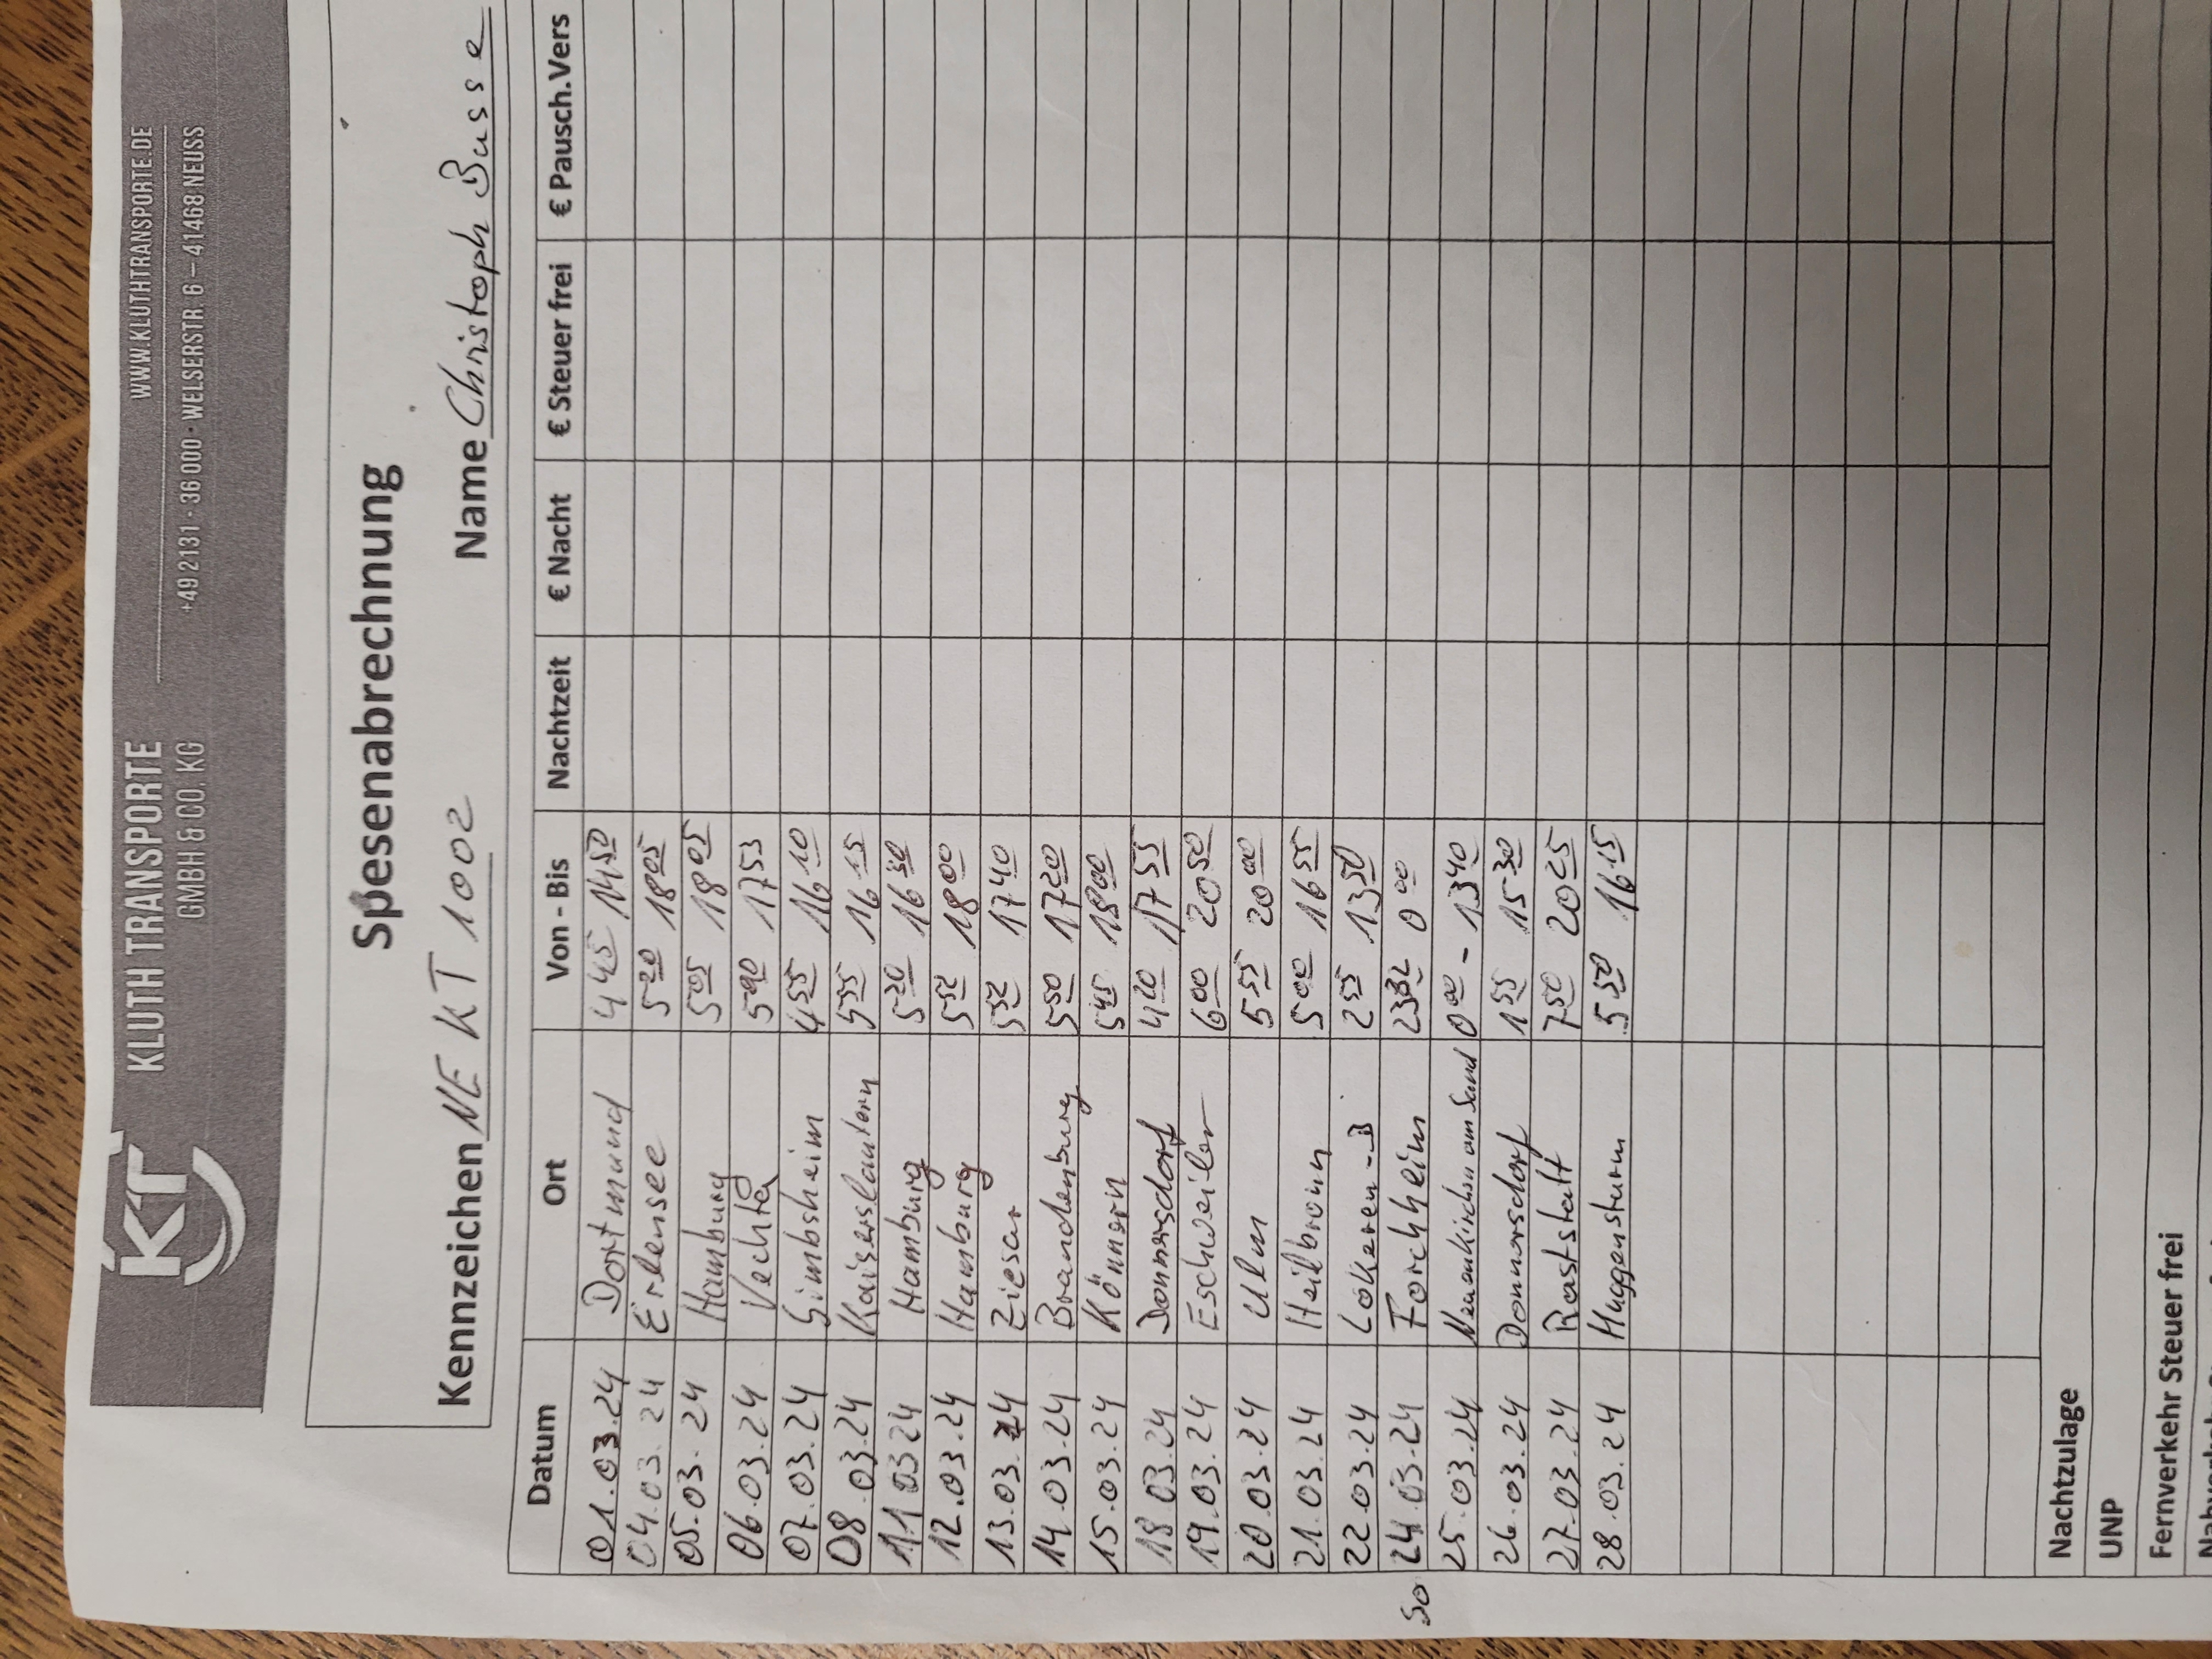 KT
KLUTH TRANSPORTE
GMBH & CO. KG
WWW.KLUTHTRANSPORTE.DE
+49 2131 - 36 000 · WELSERSTR. 6 – 41468 NEUSS
Spesenabrechnung
Kennzeichen NE KT 1002 Name Christoph Busse
Datum Ort Von - Bis Nachtzeit € Nacht € Steuer frei € Pausch.Vers
01.03.24 Dortmund 4 45 14 50
04.03.24 Erlensee 5 20 18 05
05.03.24 Hamburg 5 05 18 05
06.03.24 Vechta 17 53
07.03.24 Gimbsheim 4 55 16 10
08.03.24 Kaiserslautern 5 55 16 15
11 03 24 Hamburg 5 20 16 30
12.03.24 Hamburg 5 52 18 00
13.03.24 Ziesar 5 52 17 40
14.03.24 Brandenburg 5 50 17 20
15.03.24 Könnern 5 45 18 00
18.03.24 Donnersdorf 4 20 17 55
19.03.24 Eschweiler 6 00 20 50
20.03.24 Ulm 5 55 20 00
21.03.24 Heilbronn 5 00 16 55
22.03.24 Lokeren - B 2 55 13 50
So 24.03.24 Forchheim 0 00
25.03.24 Neuenkirchen am Sand 0 00 - 13 40
26.03.24 Donnersdorf 1 55 15 30
27.03.24 Raststatt 7 50 20 25
28.03.24 Muggensturm 5 50 16 15
Nachtzulage
UNP
Fernverkehr Steuer frei